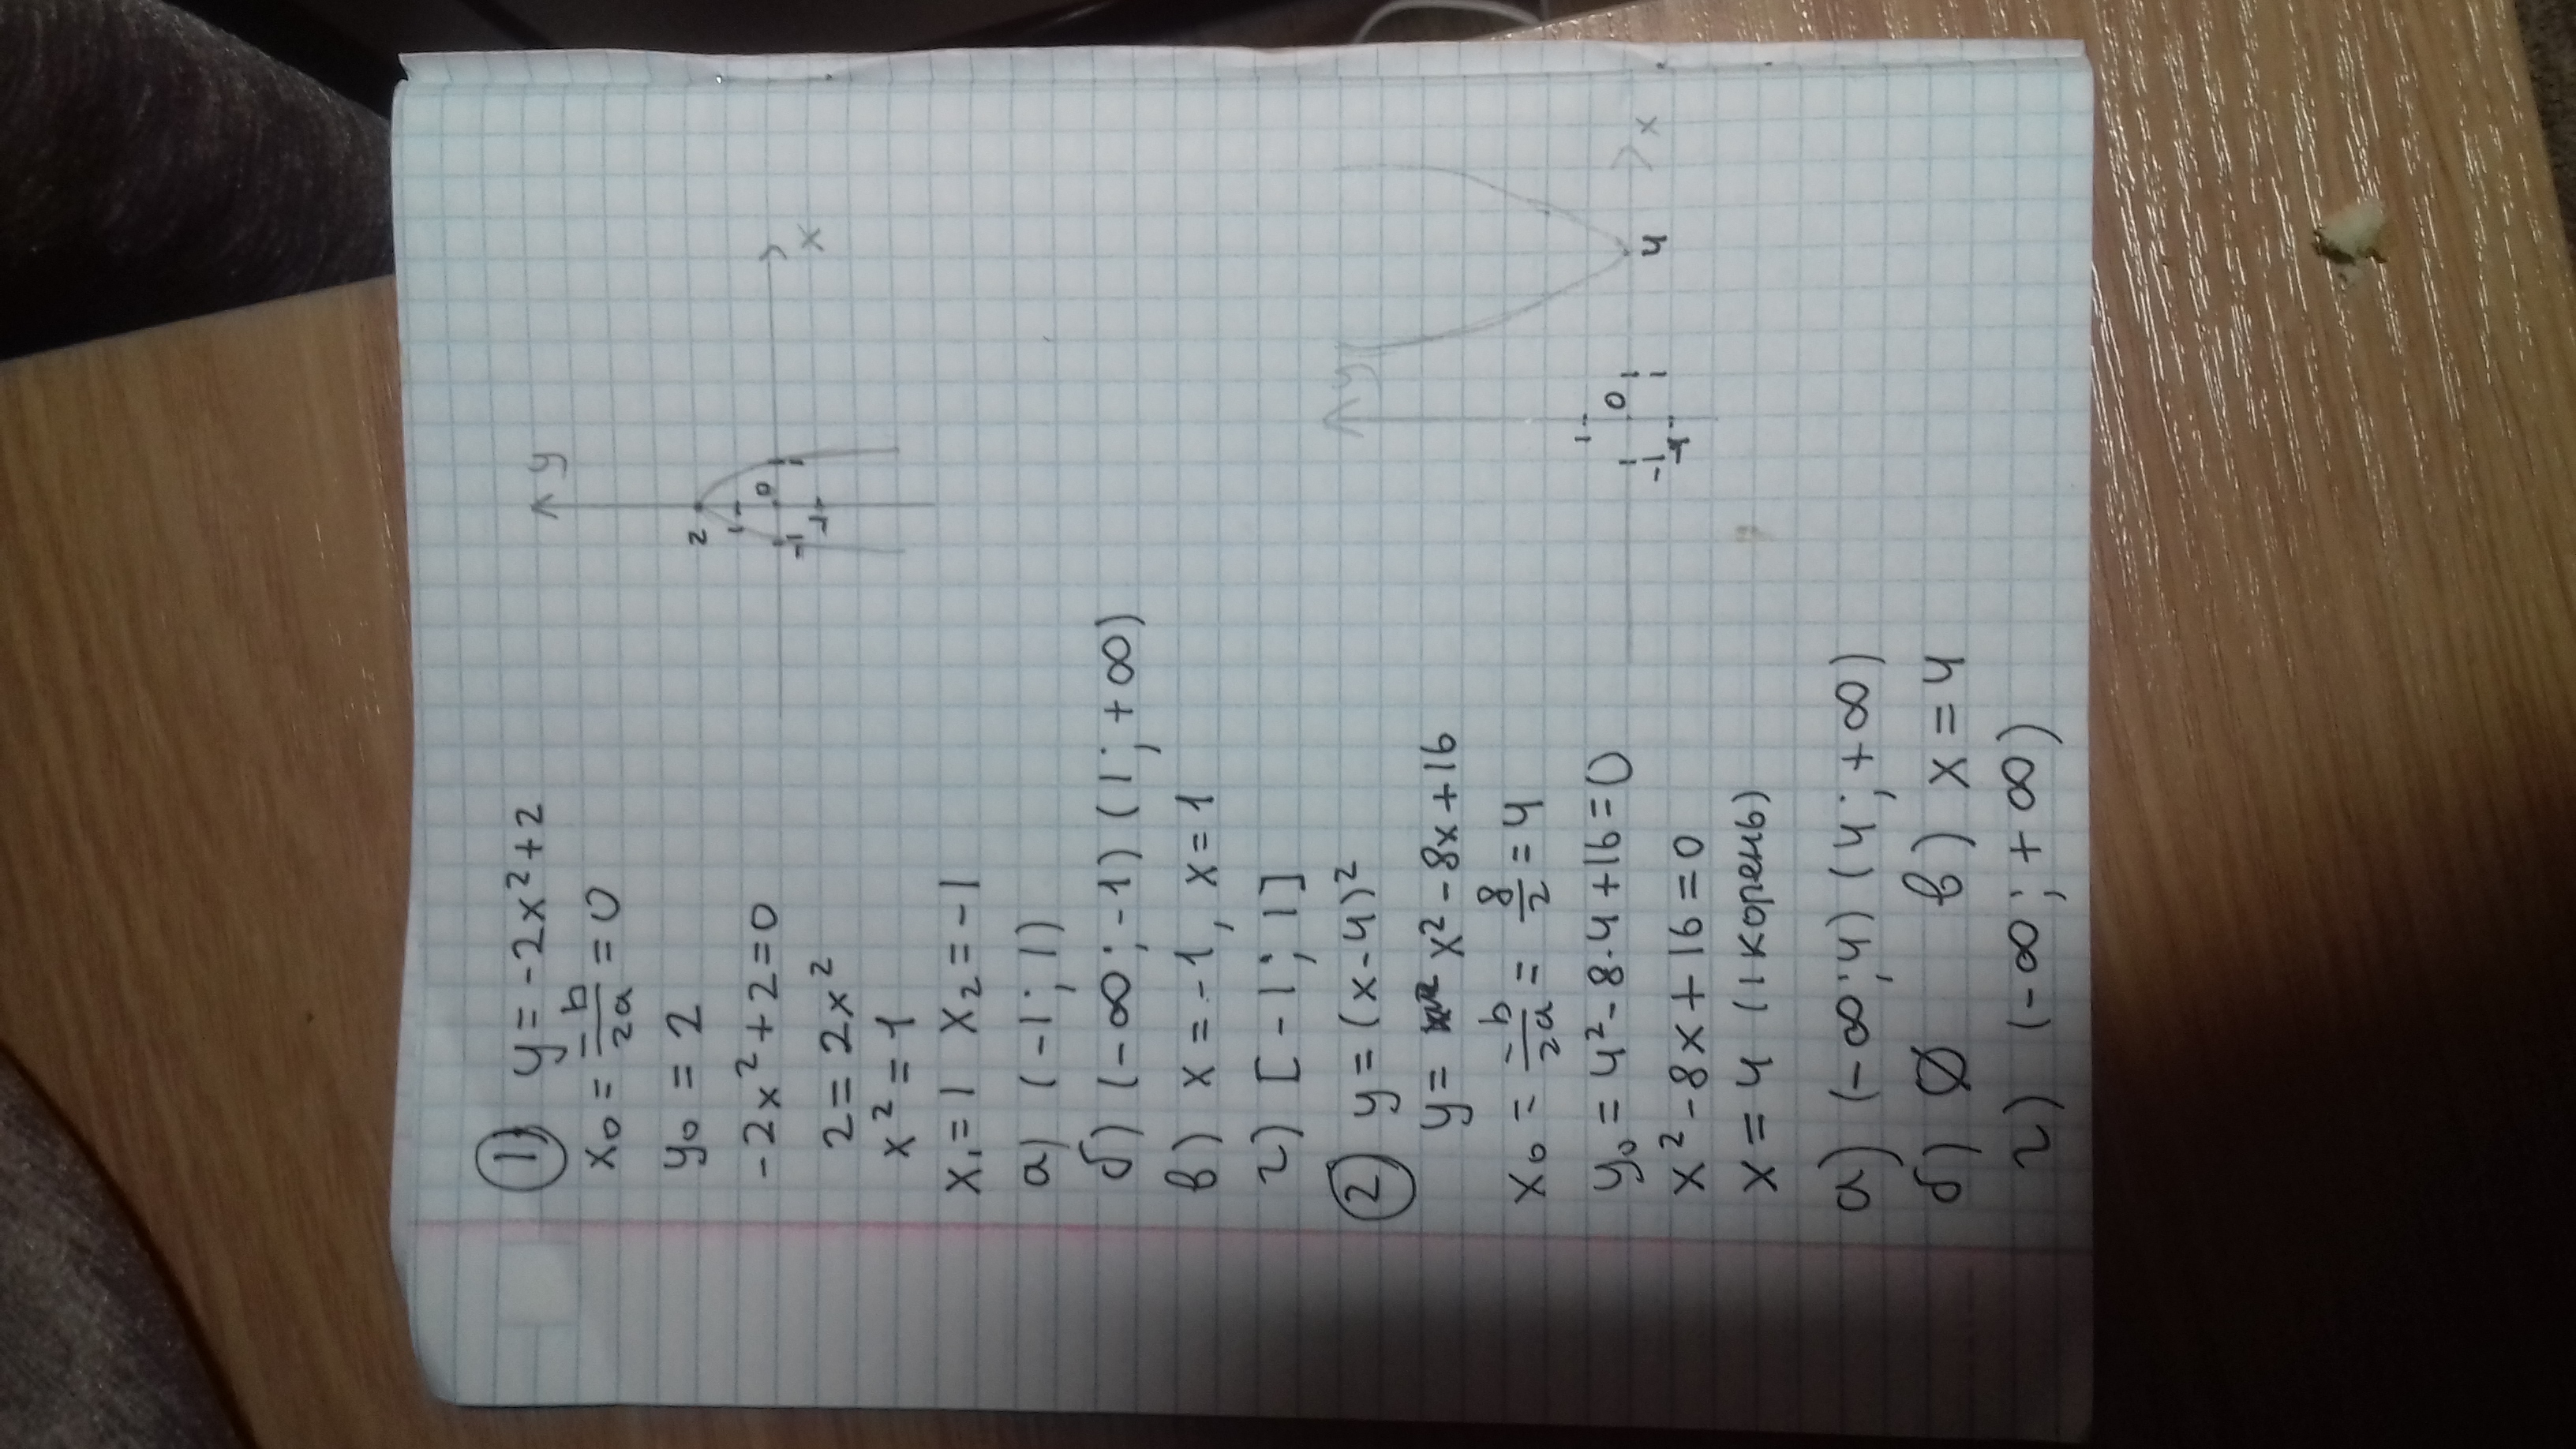 1) y = -2x² + 2
x₀ = -b/2a = 0
y₀ = 2
-2x² + 2 = 0
2 = 2x²
x² = 1
x₁ = 1 x₂ = -1
а) (-1; 1)
б) (-∞; -1) (1; +∞)
в) x = -1, x = 1
г) [-1; 1]
y
2
1
0
-1
1
-1
x
2) y = (x-4)²
y = x² - 8x + 16
x₀ = -b/2a = 8/2 = 4
y₀ = 4² - 8·4 + 16 = 0
x² - 8x + 16 = 0
x = 4 (1 корень)
а) (-∞; 4) (4; +∞)
б) ∅ в) x = 4
г) (-∞; +∞)
y
1
0
-1
1
4
x